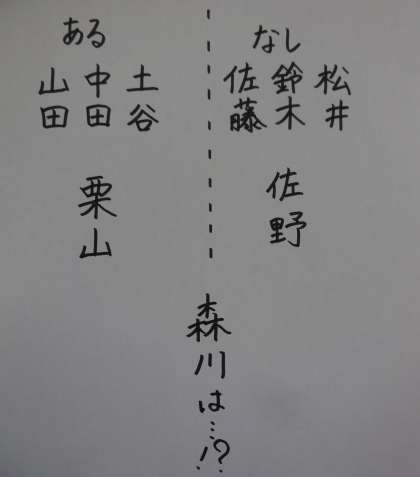 ある
山田
中田
土谷
栗山
なし
佐藤
鈴木
松井
佐野
森川は…!?